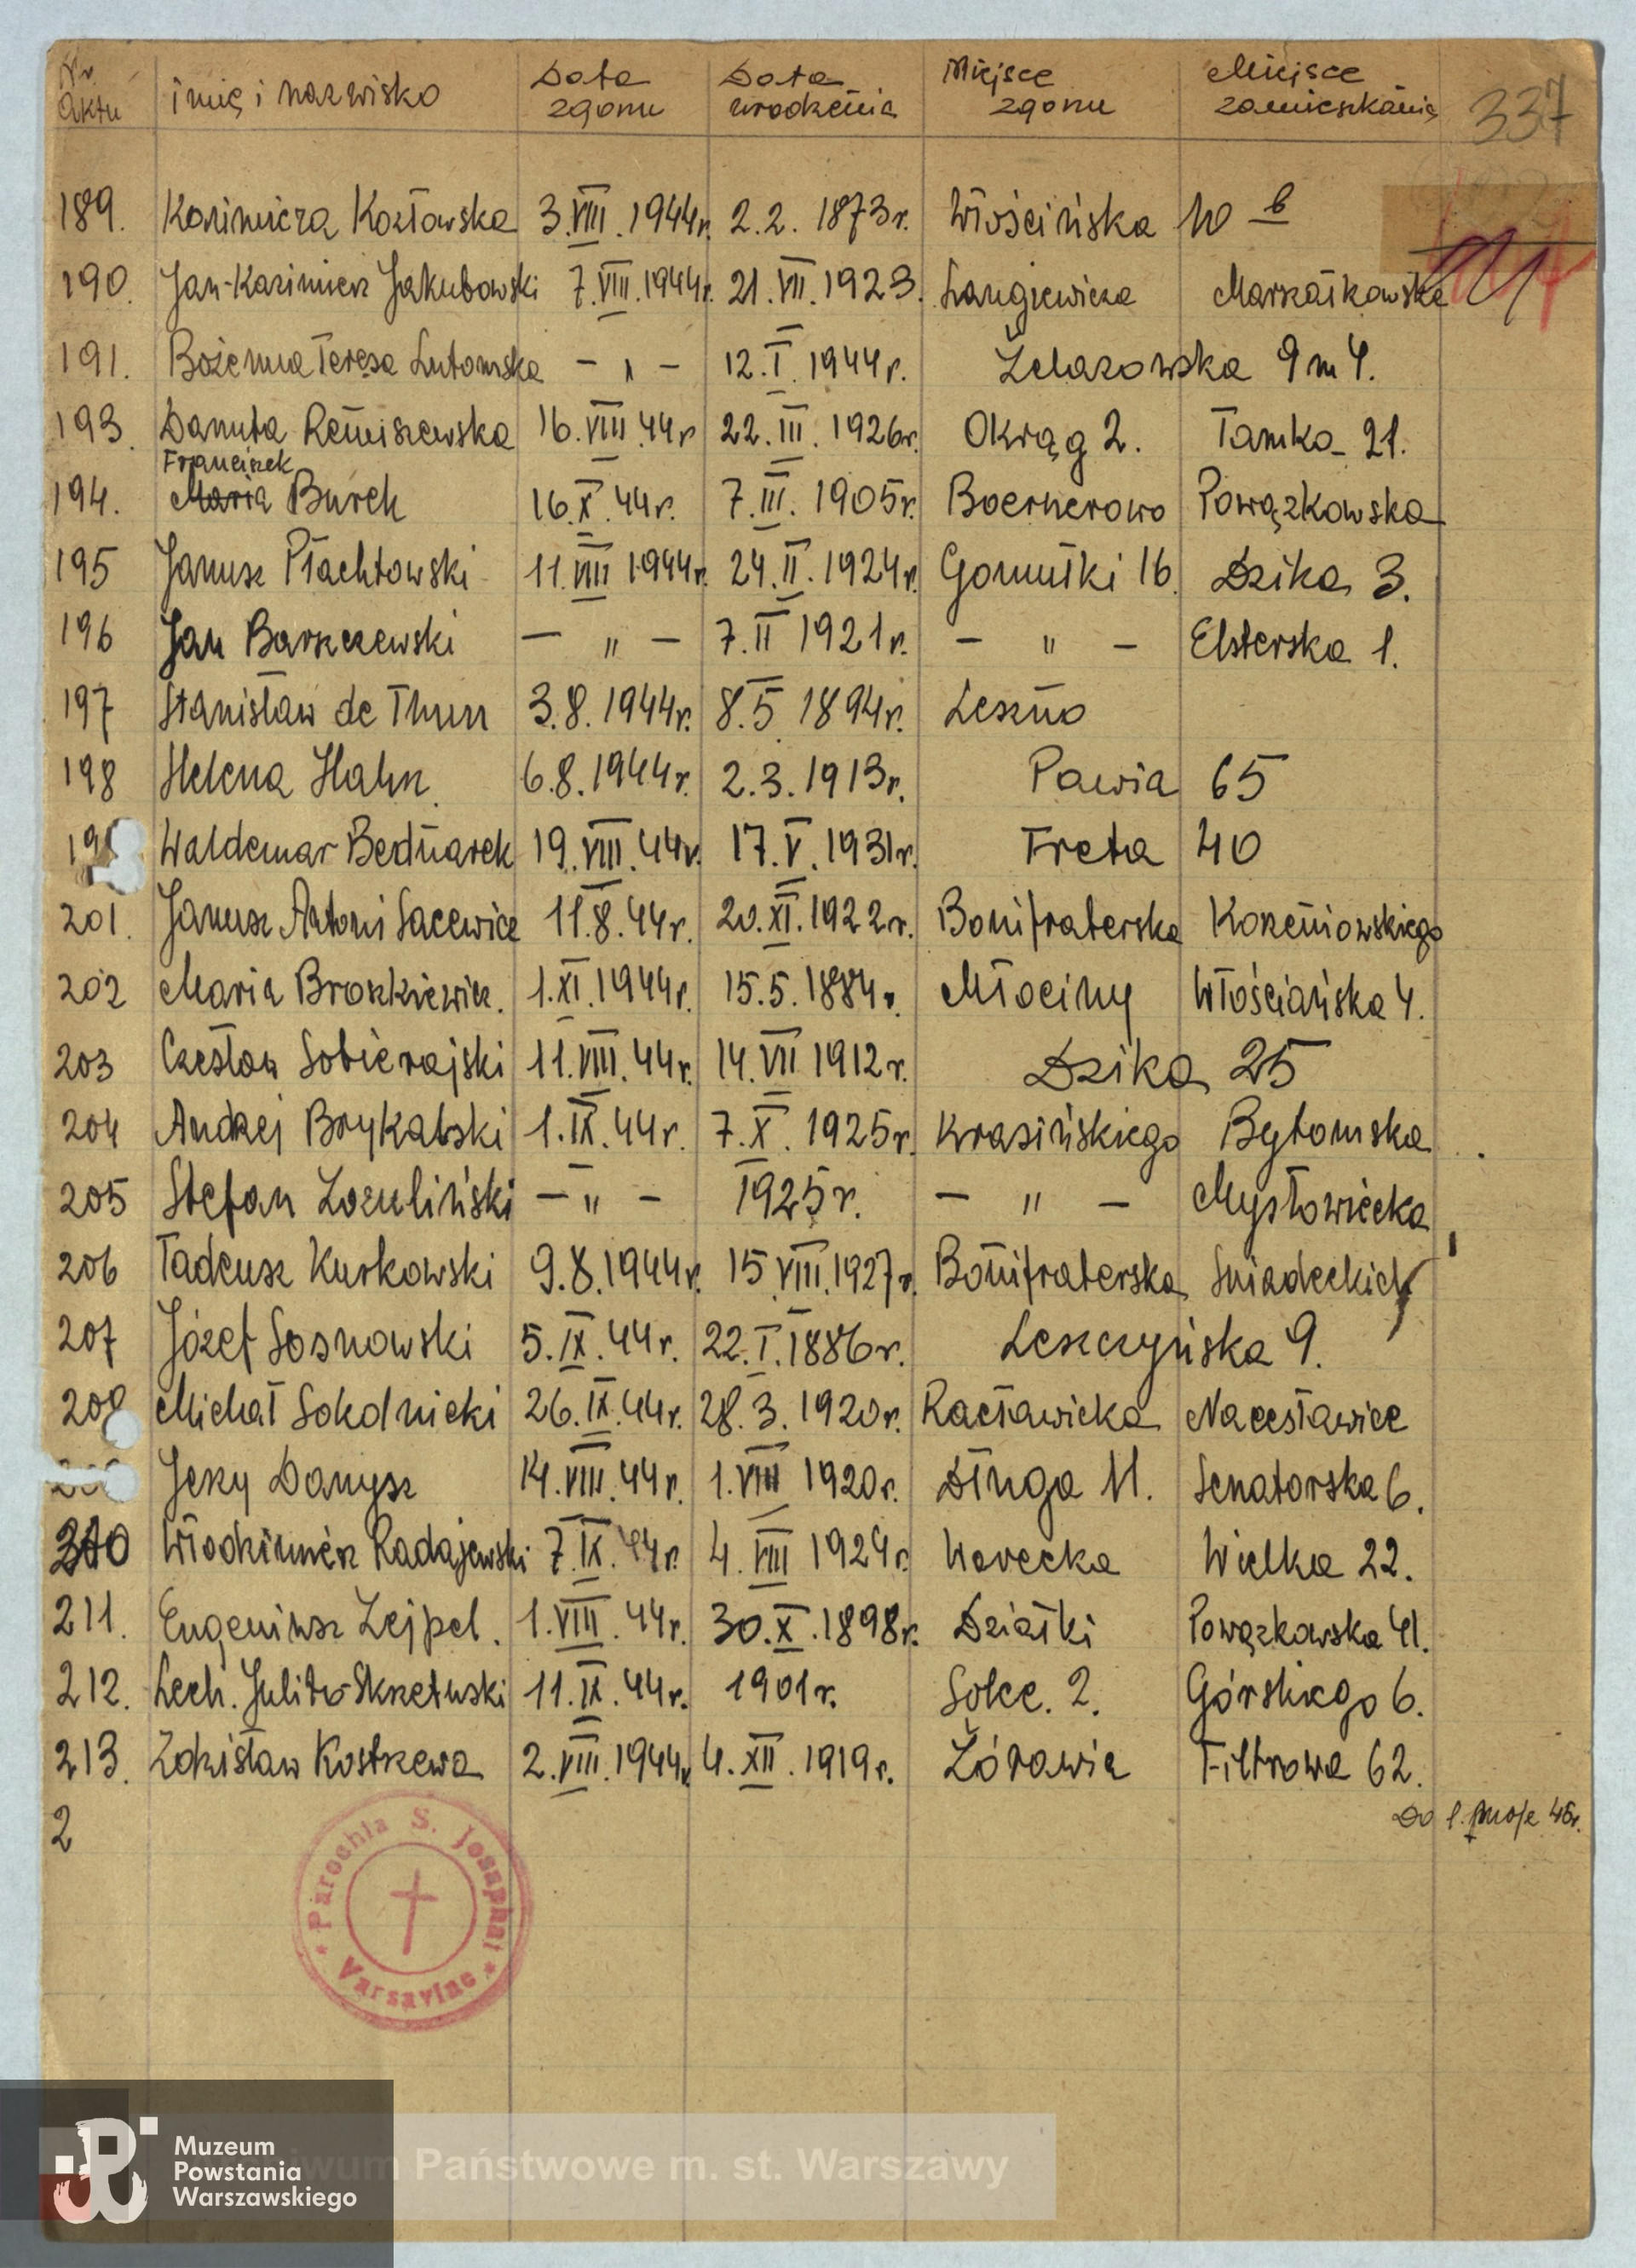 Nr aktu imię i nazwisko Data zgonu Data urodzenia Miejsce zgonu Miejsce zamieszkania 337
189. Kazimiera Kozłowska 3.VIII.1944r. 2.2.1873r. Włościńska 10 b
190. Jan-Kazimierz Jakubowski 7.VIII.1944r. 21.VII.1923. Langiewicza Marszałkowska
191. Bożenna Teresa Lutomska - „ - 12.I.1944r. Żelazowska 9 m 4.
193. Danuta Remiszewska 16.VIII.44r 22.III.1926r. Okrąg 2. Tamka 21.
Franciszek
194. Maria Burch 16.X.44r. 7.III.1905r. Boernerowo Powązkowska
195 Janusz Płachtowski 11.VIII 1944r. 24.II.1924r. Gomułki 16 Dzika 3.
196 Jan Barszczewski - „ - 7.II 1921r. - „ - Elsterska 1.
197 Stanisław de Thun 3.8.1944r. 8.5 1894r. Leszno
198 Helena Hahn. 6.8.1944r. 2.3.1913r. Pawia 65
Waldemar Bednarek 19.VIII.44r. 17.V.1931r. Freta 40
201. Janusz Antoni Sacewicz 11.8.44r. 20.XI.1922r. Bonifraterska Korzeniowskiego
202 Maria Broszkiewicz. 1.XI.1944r. 15.5.1884r. Młociny Włościańska 4.
203 Czesław Sobierajski 11.VIII.44r. 14.VII 1912r. Dzika 25
204 Andrzej Brykalski 1.IX.44r. 7.X.1925r. Krasińskiego Bytomska
205 Stefan Lozuliński - „ - 1925r. - „ - Mysłowiecka
206 Tadeusz Kurkowski 9.8.1944r. 15.VIII.1927r. Bonifraterska Sniadeckich
207 Józef Sosnowski 5.IX.44r. 22.I.1886r. Leszczyńska 9.
208 Michał Sokolnicki 26.IX.44r. 28.3.1920r. Racławicka Nacesławice
Jerzy Danysz 14.VIII.44r. 1.VIII 1920r. Długa 11. Senatorska 6.
210 Włodzimierz Radajewski 7.IX.44r. 4.VIII 1924r. Warecka Wielka 22.
211. Eugeniusz Zejpel. 1.VIII.44r. 30.X.1898r. Działki Powązkowska 41.
212. Lech. Julito-Skrzetuski 11.IX.44r. 1901r. Solec. 2. Górskiego 6.
213. Zdzisław Kostrzewa 2.VIII.1944r 4.XII.1919r. Żórawia Filtrowa 62.
2 Do 1. 45r.
Parochia S. Josaphat Varsaviae
Muzeum
Powstania
Warszawskiego
iwum Państwowe m. st. Warszawy